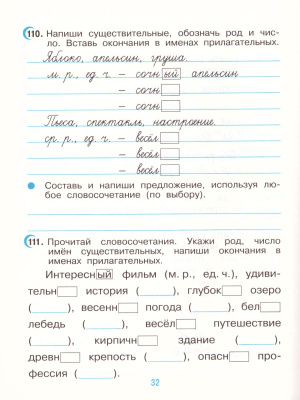 110. Напиши существительные, обозначь род и чис-
ло. Вставь окончания в именах прилагательных.
Яблоко, апельсин, груша.
м. р., ед. ч. – сочный апельсин
– сочн
– сочн
Пьеса, спектакль, настроение.
ср. р., ед. ч. – весёл
– весёл
– весёл
Составь и напиши предложение, используя лю-
бое словосочетание (по выбору).
111. Прочитай словосочетания. Укажи род, число
имён существительных, напиши окончания в
именах прилагательных.
Интересный фильм (м. р., ед. ч.), удиви-
тельн история ( ), глубок озеро
( ), весенн погода ( ), бел
лебедь ( ), весёл путешествие
( ), кирпичн здание ( ),
древн крепость ( ), опасн про-
фессия ( ).
32